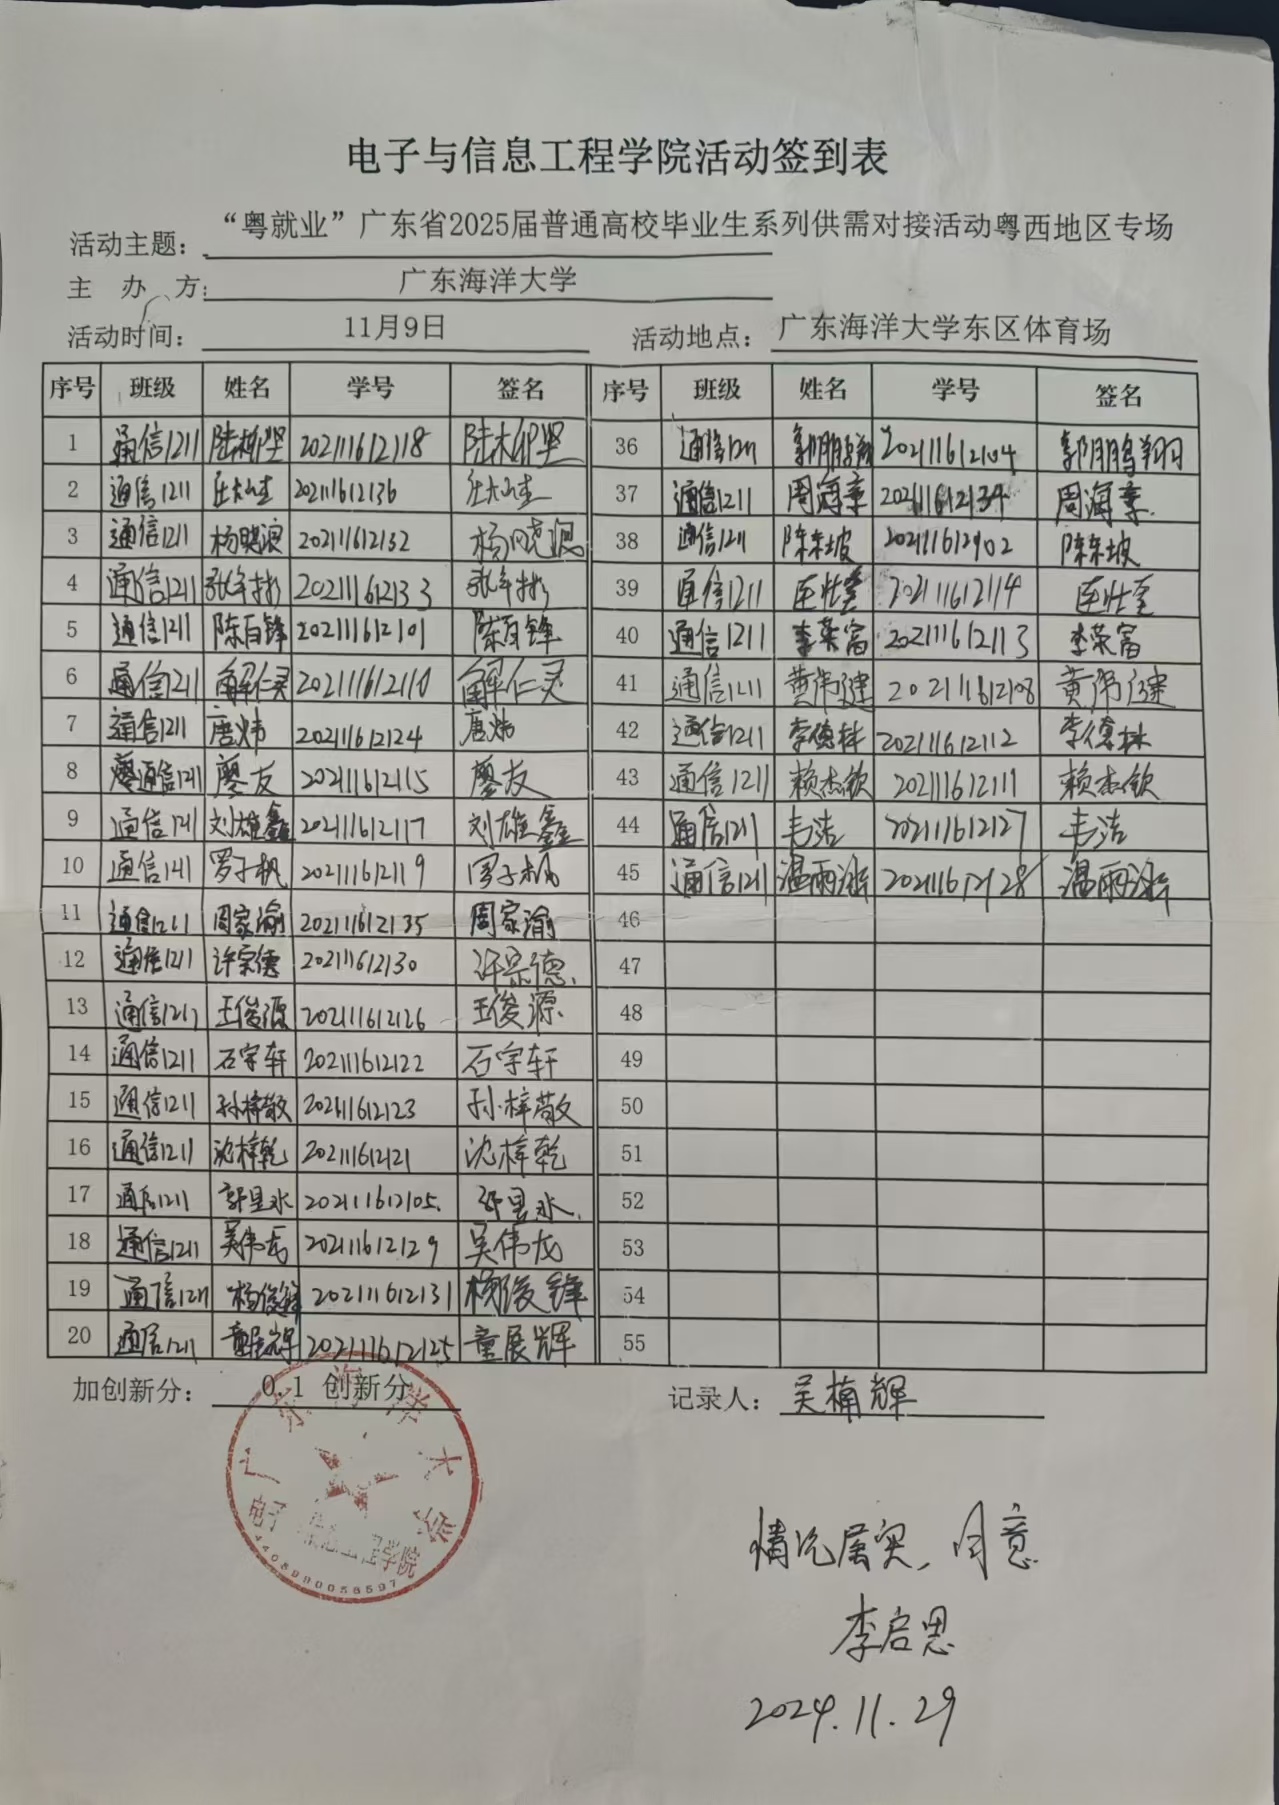 电子与信息工程学院活动签到表
活动主题：“粤就业”广东省2025届普通高校毕业生系列供需对接活动粤西地区专场
主 办 方：广东海洋大学
活动时间：11月9日 活动地点：广东海洋大学东区体育场
序号 班级 姓名 学号 签名 序号 班级 姓名 学号 签名
1 通信1211 陆柳坚 202111612118 陆柳坚 36 通信1211 郭鹏翔 202111612104 郭鹏翔
2 通信1211 202111612136 37 通信1211 周海豪 202111612134 周海豪
3 通信1211 杨晓滨 202111612132 杨晓滨 38 通信1211 陈东坡 202111612102 陈东坡
4 通信1211 张年彬 202111612133 张年彬 39 通信1211 连壮奎 202111612114 连壮奎
5 通信1211 陈百锋 202111612101 陈百锋 40 通信1211 李荣富 202111612113 李荣富
6 通信1211 解仁灵 202111612110 解仁灵 41 通信1211 黄伟健 202111612108 黄伟健
7 通信1211 唐炜 202111612124 唐炜 42 通信1211 李德林 202111612112 李德林
8 通信1211 廖友 202111612115 廖友 43 通信1211 赖杰钦 202111612111 赖杰钦
9 通信1211 刘雄鑫 202111612117 刘雄鑫 44 通信1211 韦洁 202111612127 韦洁
10 通信1211 罗子帆 202111612119 罗子帆 45 通信1211 温雨 202111612128 温雨
11 通信1211 周家渝 202111612135 周家渝 46
12 通信1211 许宗德 202111612130 许宗德 47
13 通信1211 王俊源 202111612126 王俊源 48
14 通信1211 石宇轩 202111612122 石宇轩 49
15 通信1211 孙梓敬 202111612123 孙梓敬 50
16 通信1211 沈梓乾 202111612121 沈梓乾 51
17 通信1211 202111612105 52
18 通信1211 吴伟龙 202111612129 吴伟龙 53
19 通信1211 杨俊锋 202111612131 杨俊锋 54
20 通信1211 童展辉 202111612125 童展辉 55
加创新分：0.1 创新分 记录人：吴楠辉
广东海洋大学
电子与信息工程学院
4408990056597
情况属实，同意
李启思
2024.11.29